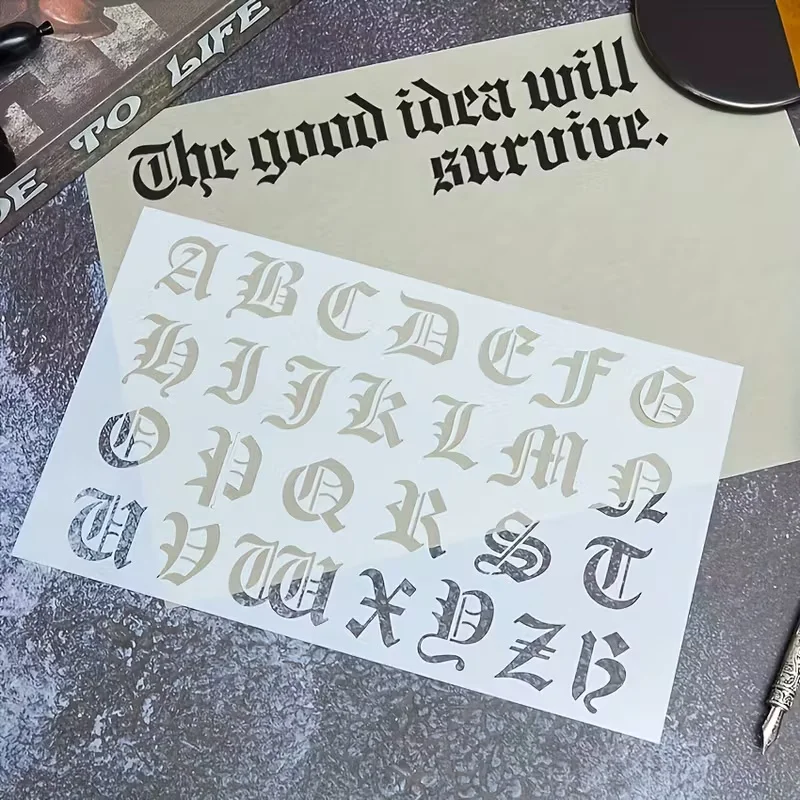 DE TO LIFE
The good idea will
survive.
A B C D E F G
H I J K L M N
O P Q R S T
U V W X Y Z